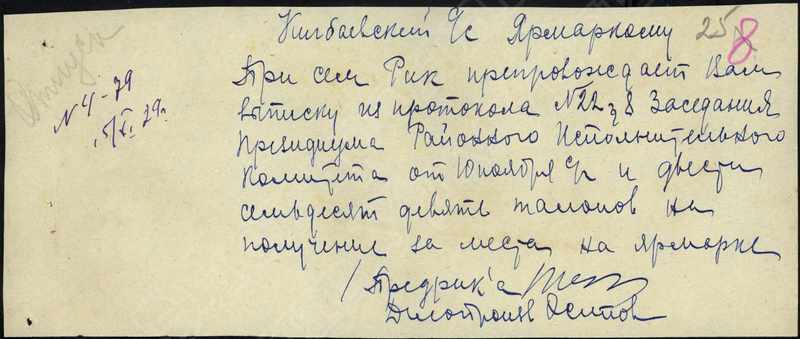 Кулбаевский Ус Ярмаркому
25
8
Отпуск
N 4-79
15/XI 29г.
При сем Рик препровождает Вам
выписку из протокола №22 з 8 Заседания
президиума Районного Исполнительного
комитета от 10 ноября с/г и двести
семьдесят девять талонов на
получение за места на ярмарке
/Предрик'а
Делопроизв Осипов